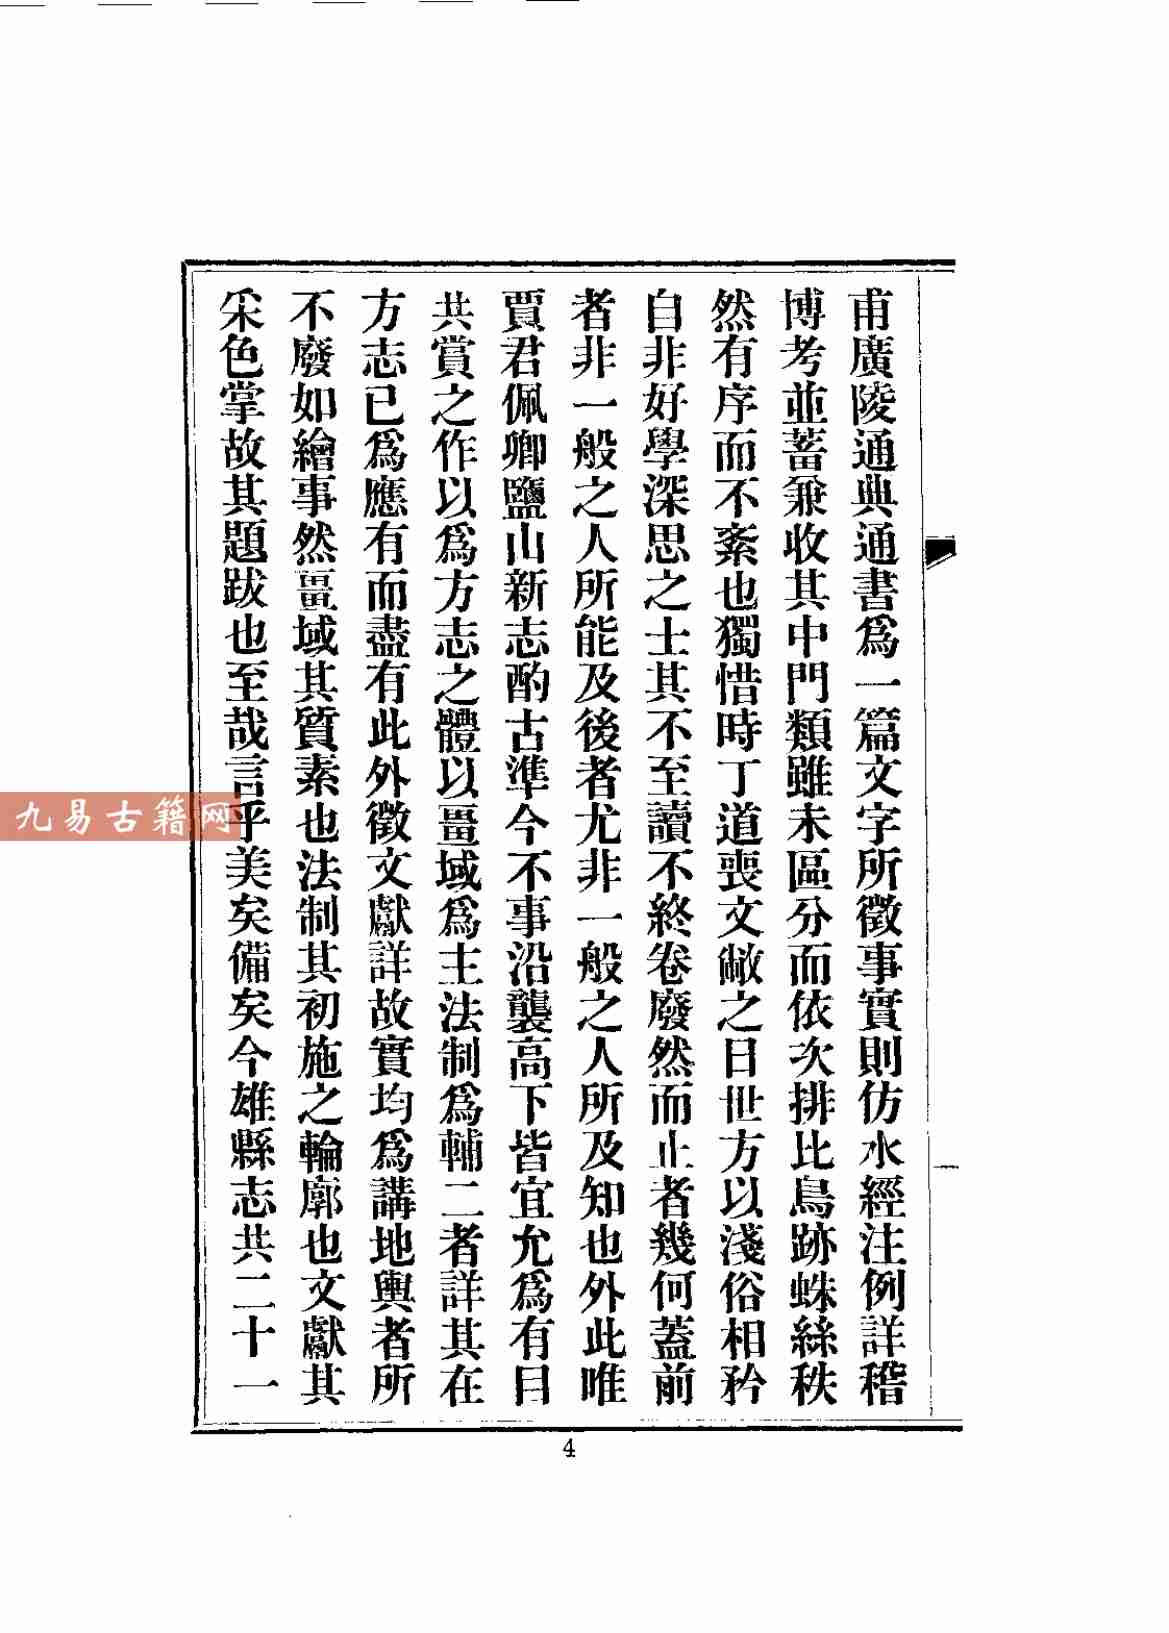 甫廣陵通典通書爲一篇文字所徵事實則仿水經注例詳稽
博考並蓄兼收其中門類雖未區分而依次排比鳥跡蛛絲秩
然有序而不紊也獨惜時丁道喪文敝之日世方以淺俗相矜
自非好學深思之士其不至讀不終卷廢然而止者幾何蓋前
者非一般之人所能及後者尤非一般之人所及知也外此唯
賈君佩卿鹽山新志酌古準今不事沿襲高下皆宜允爲有目
共賞之作以爲方志之體以畺域爲主法制爲輔二者詳其在
方志已爲應有而盡有此外徵文獻詳故實均爲講地輿者所
不廢如繪事然畺域其質素也法制其初施之輪廓也文獻其
采色掌故其題跋也至哉言乎美矣備矣今雄縣志共二十一
一
4
九易古籍网